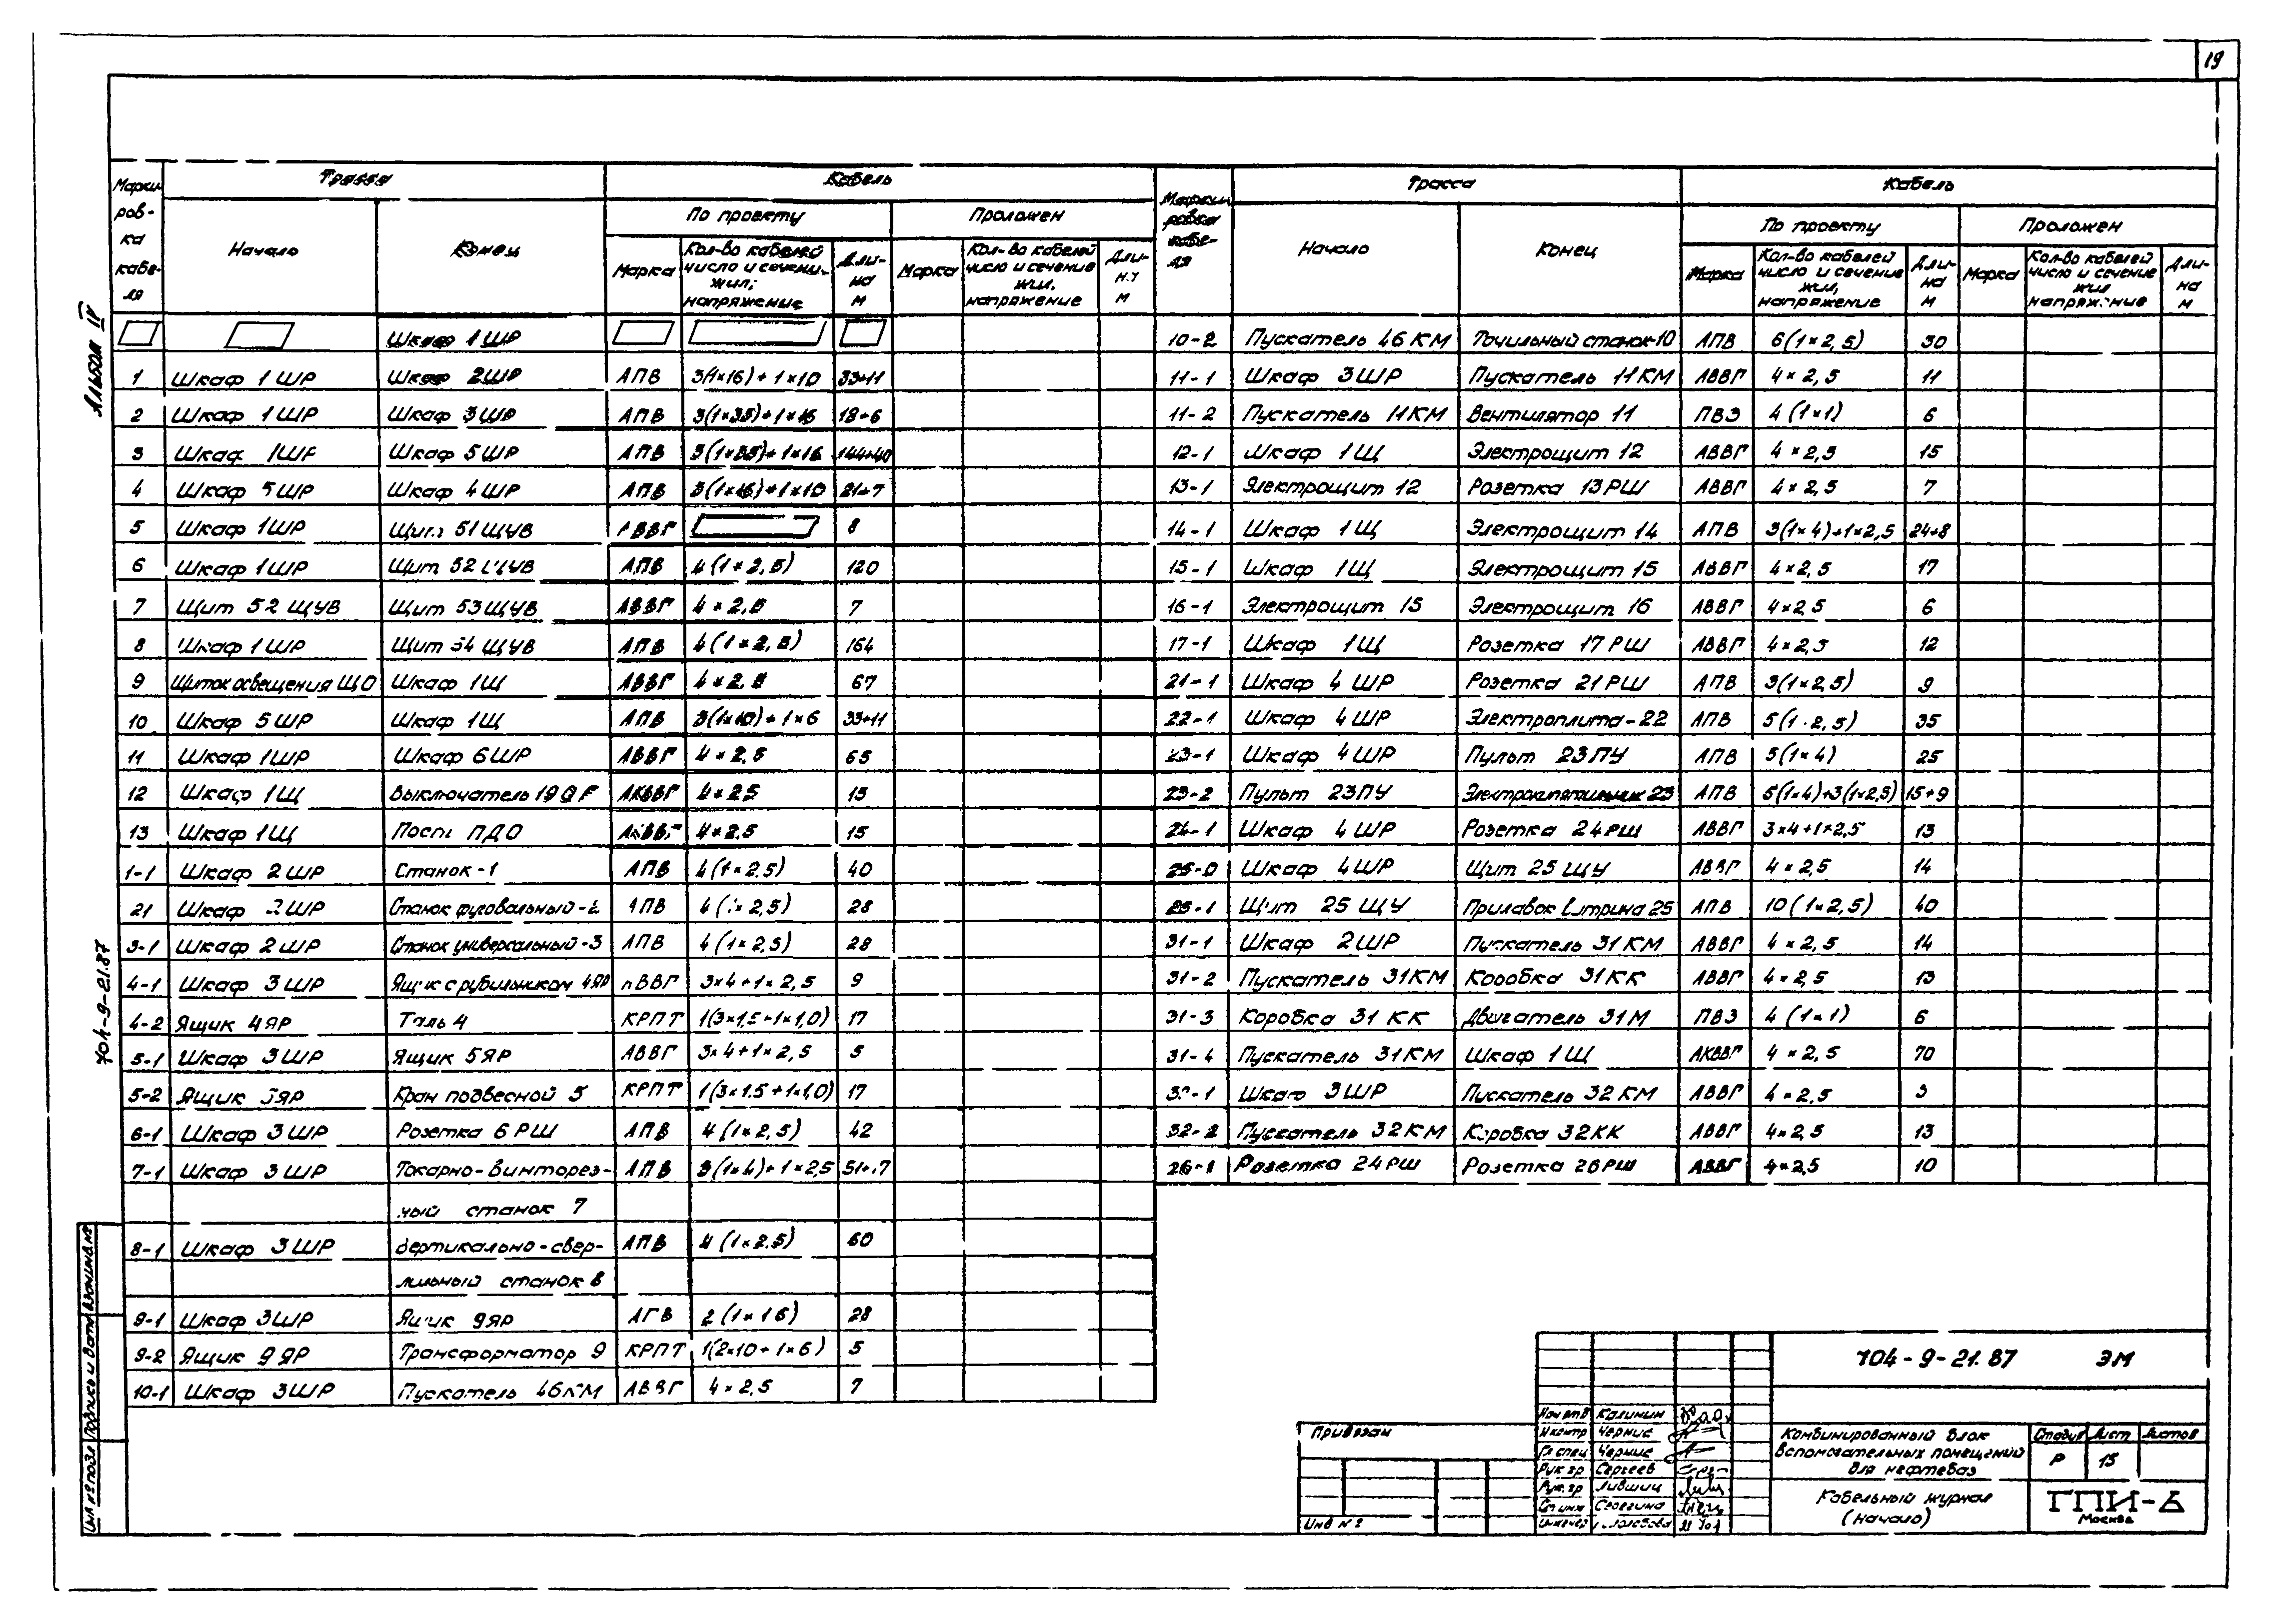 19
Альбом IV
704-9-21.87
Марки-ров-ка кабе-ля | Трасса | Кабель
Начало | Конец | По проекту | Проложен
Марка | Кол-во кабелей число и сечение жил, напряжение | Дли-на м | Марка | Кол-во кабелей число и сечение жил, напряжение | Дли-на м
Шкаф 1ШР
1 Шкаф 1ШР Шкаф 2ШР АПВ 3(1×16)+1×10 33+11
2 Шкаф 1ШР Шкаф 3ШР АПВ 3(1×35)+1×16 18+6
3 Шкаф 1ШР Шкаф 5ШР АПВ 3(1×35)+1×16 144+40
4 Шкаф 5ШР Шкаф 4ШР АПВ 3(1×16)+1×10 21+7
5 Шкаф 1ШР Щит 51ЩУВ АВВГ 8
6 Шкаф 1ШР Щит 52ЩУВ АПВ 4(1×2,5) 120
7 Щит 52ЩУВ Щит 53ЩУВ АВВГ 4×2,5 7
8 Шкаф 1ШР Щит 54ЩУВ АПВ 4(1×2,5) 164
9 Щиток освещения ЩО Шкаф 1Щ АВВГ 4×2,5 67
10 Шкаф 5ШР Шкаф 1Щ АПВ 3(1×10)+1×6 33+11
11 Шкаф 1ШР Шкаф 6ШР АВВГ 4×2,5 65
12 Шкаф 1Щ Выключатель 19QF АКВВГ 4×2,5 15
13 Шкаф 1Щ Пост ПДО АКВВГ 4×2,5 15
1-1 Шкаф 2ШР Станок-1 АПВ 4(1×2,5) 40
21 Шкаф 2ШР Станок фуговальный-2 АПВ 4(1×2,5) 28
3-1 Шкаф 2ШР Станок универсальный-3 АПВ 4(1×2,5) 28
4-1 Шкаф 3ШР Ящик с рубильником 4ЯР АВВГ 3×4+1×2,5 9
4-2 Ящик 4ЯР Таль 4 КРПТ 1(3×1,5+1×1,0) 17
5-1 Шкаф 3ШР Ящик 5ЯР АВВГ 3×4+1×2,5 5
5-2 Ящик 5ЯР Кран подвесной 5 КРПТ 1(3×1.5+1×1,0) 17
6-1 Шкаф 3ШР Розетка 6РШ АПВ 4(1×2,5) 42
7-1 Шкаф 3ШР Токарно-винторез- АПВ 3(1×4)+1×2,5 51+17
ный станок 7
8-1 Шкаф 3ШР Вертикально-свер- АПВ 4(1×2.5) 60
лильный станок 8
9-1 Шкаф 3ШР Ящик 9ЯР АПВ 2(1×16) 28
9-2 Ящик 9ЯР Трансформатор 9 КРПТ 1(2×10+1×6) 5
10-1 Шкаф 3ШР Пускатель 46КМ АВВГ 4×2,5 7
Марки ровка кабе-ля | Трасса | Кабель
Начало | Конец | По проекту | Проложен
Марка | Кол-во кабелей число и сечение жил, напряжение | Дли-на м | Марка | Кол-во кабелей число и сечение жил напряжение | Дли-на м
10-2 Пускатель 46КМ Точильный станок-10 АПВ 6(1×2,5) 30
11-1 Шкаф 3ШР Пускатель 11КМ АВВГ 4×2,5 11
11-2 Пускатель 11КМ Вентилятор 11 ПВ3 4(1×1) 6
12-1 Шкаф 1Щ Электрощит 12 АВВГ 4×2,5 15
13-1 Электрощит 12 Розетка 13РШ АВВГ 4×2,5 7
14-1 Шкаф 1Щ Электрощит 14 АПВ 3(1×4)+1×2,5 24+8
15-1 Шкаф 1Щ Электрощит 15 АВВГ 4×2,5 17
16-1 Электрощит 15 Электрощит 16 АВВГ 4×2,5 6
17-1 Шкаф 1Щ Розетка 17РШ АВВГ 4×2,5 12
21-1 Шкаф 4ШР Розетка 21РШ АПВ 3(1×2,5) 9
22-1 Шкаф 4ШР Электроплита-22 АПВ 5(1×2,5) 35
23-1 Шкаф 4ШР Пульт 23ПУ АПВ 5(1×4) 25
23-2 Пульт 23ПУ Электрокипятильник 23 АПВ 5(1×4)+3(1×2,5) 15+9
24-1 Шкаф 4ШР Розетка 24РШ АВВГ 3×4+1×2,5 13
25-0 Шкаф 4ШР Щит 25ЩУ АВВГ 4×2,5 14
25-1 Щит 25ЩУ Прилавок витрина 25 АПВ 10(1×2,5) 40
31-1 Шкаф 2ШР Пускатель 31КМ АВВГ 4×2,5 14
31-2 Пускатель 31КМ Коробка 31КК АВВГ 4×2,5 13
31-3 Коробка 31КК Двигатель 31М ПВ3 4(1×1) 6
31-4 Пускатель 31КМ Шкаф 1Щ АКВВГ 4×2,5 70
32-1 Шкаф 3ШР Пускатель 32КМ АВВГ 4×2,5 3
32-2 Пускатель 32КМ Коробка 32КК АВВГ 4×2,5 13
26-1 Розетка 24РШ Розетка 26РШ АВВГ 4×2,5 10
Инв № подл Подпись и дата Взам инв №
Привязан
Инв №
Нач отд Калинин
Н контр Чернис
Гл спец Чернис
Рук гр Сергеев
Рук. гр Лившиц
Ст инж Серегина
Инженер
704-9-21.87 ЭМ
Комбинированный блок вспомогательных помещений для нефтебаз
Стадия Лист Листов
Р 15
Кабельный журнал (начало)
ГПИ-6
Москва